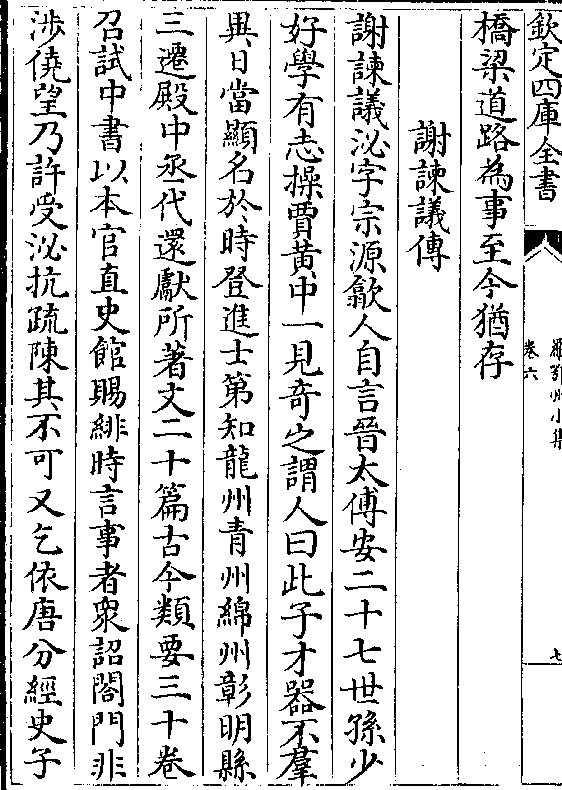 欽定四庫全書
羅鄂州小集
卷六
七
橋梁道路為事至今猶存
謝諫議傳
謝諫議泌字宗源歙人自言晉太傅安二十七世孫少
好學有志操賈黃中一見奇之謂人曰此子才器不羣
異日當顯名於時登進士第知龍州青州綿州彰明縣
三遷殿中丞代還獻所著文二十篇古今類要三十卷
召試中書以本官直史館賜緋時言事者衆詔閤門非
涉僥望乃許受泌抗疏陳其不可又乞依唐分經史子